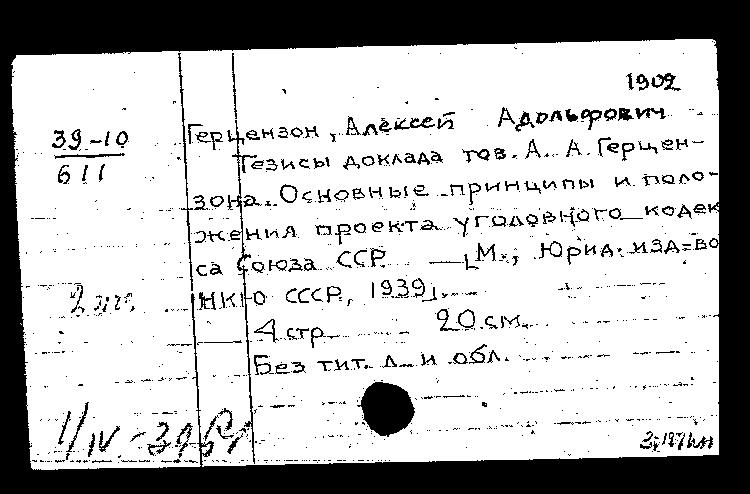 1902
39-10
611
Герцензон, Алексей Адольфович
Тезисы доклада тов. А. А. Герцен-
зона. Основные принципы и поло-
жения проекта уголовного кодек
са Союза ССР. — [М., Юрид. изд-во
НКЮ СССР, 1939].
2 экз.
4 стр. 20 см.
Без тит. л. и обл.
1/IV-39